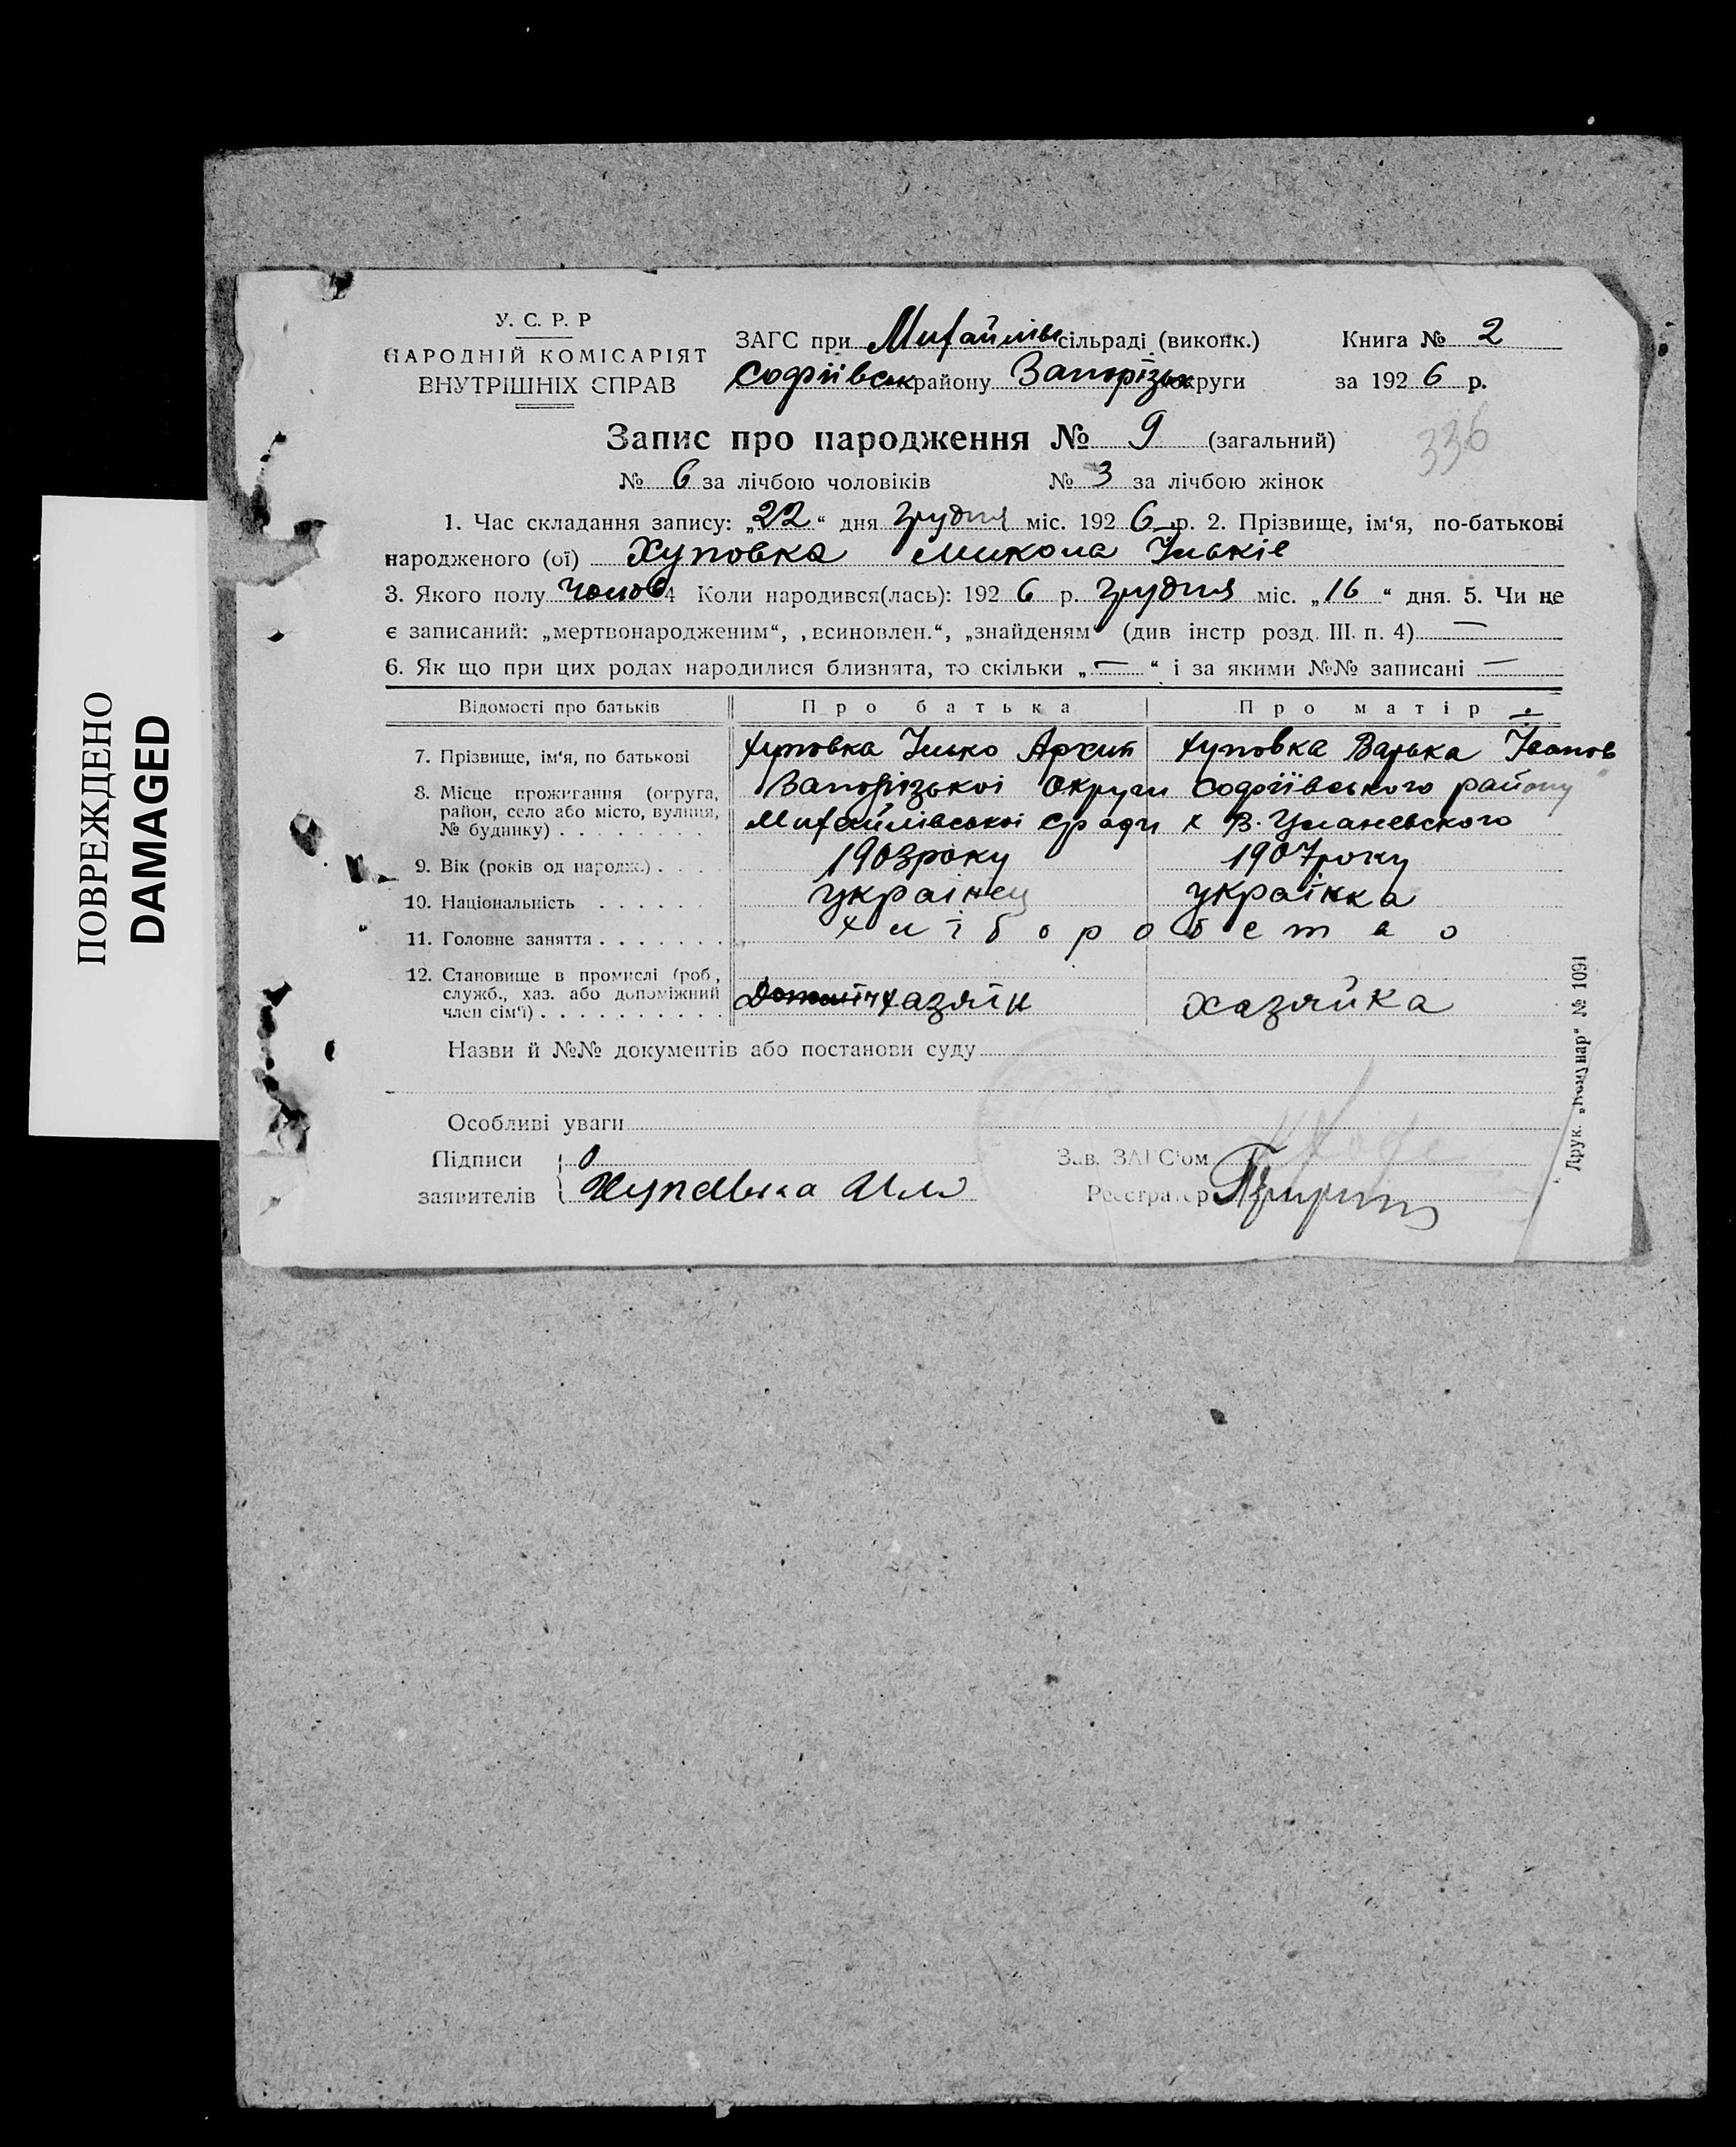 ПОВРЕЖДЕНО
DAMAGED
У. С. Р. Р
НАРОДНІЙ КОМІСАРІЯТ
ВНУТРІШНІХ СПРАВ
ЗАГС при Михайлівс сільраді (виконк.)
Софіївськ району Запорізьк округи
Книга № 2
за 192 6 р.
Запис про народження № 9 (загальний)
336
№ 6 за лічбою чоловіків № 3 за лічбою жінок
1. Час складання запису: „22“ дня грудня міс. 192 6 р. 2. Прізвище, ім‘я, по-батькові
народженого (ої) Хуповка Микола Ільків
3. Якого полу чолов 4 Коли народився(лась): 192 6 р. грудня міс. „16“ дня. 5. Чи не
є записаний: „мертвонародженим“, „всиновлен.“, „знайденям“ (див інстр розд. III. п. 4) —
6. Як що при цих родах народилися близнята, то скільки „—“ і за якими №№ записані —
Відомості про батьків Про батька Про матір
7. Прізвище, ім‘я, по батькові Хуповка Ілько Архип Хуповка Варька Іванов
8. Місце прожигання (округа, район, село або місто, вулиця, № будинку) Запорізькоі Округи Софіївського району
Михайлівськоі Сради х В. Уманевского
9. Вік (років од народж.) 1903 року 1907 року
10. Національність украінец украінка
11. Головне заняття хліборобство
12. Становище в промислі (роб., служб., хаз. або допоміжний член сім‘ї) хазяїн хазяйка
Назви й №№ документів або постанови суду
Особливі уваги
Підписи
заявителів Хуповка Ило
Зав. ЗАГС‘ом
Реєстратор
Друк. „Комунар“ № 1091